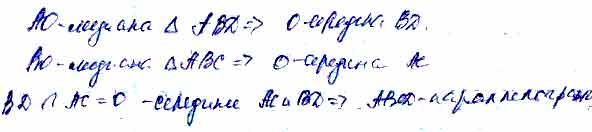 AO-медиана △ ABD => O-середина BD.
BO-медиана △ABC => O-середина AC
BD ∩ AC = O - середине AC и BD => ABCD-параллелограм